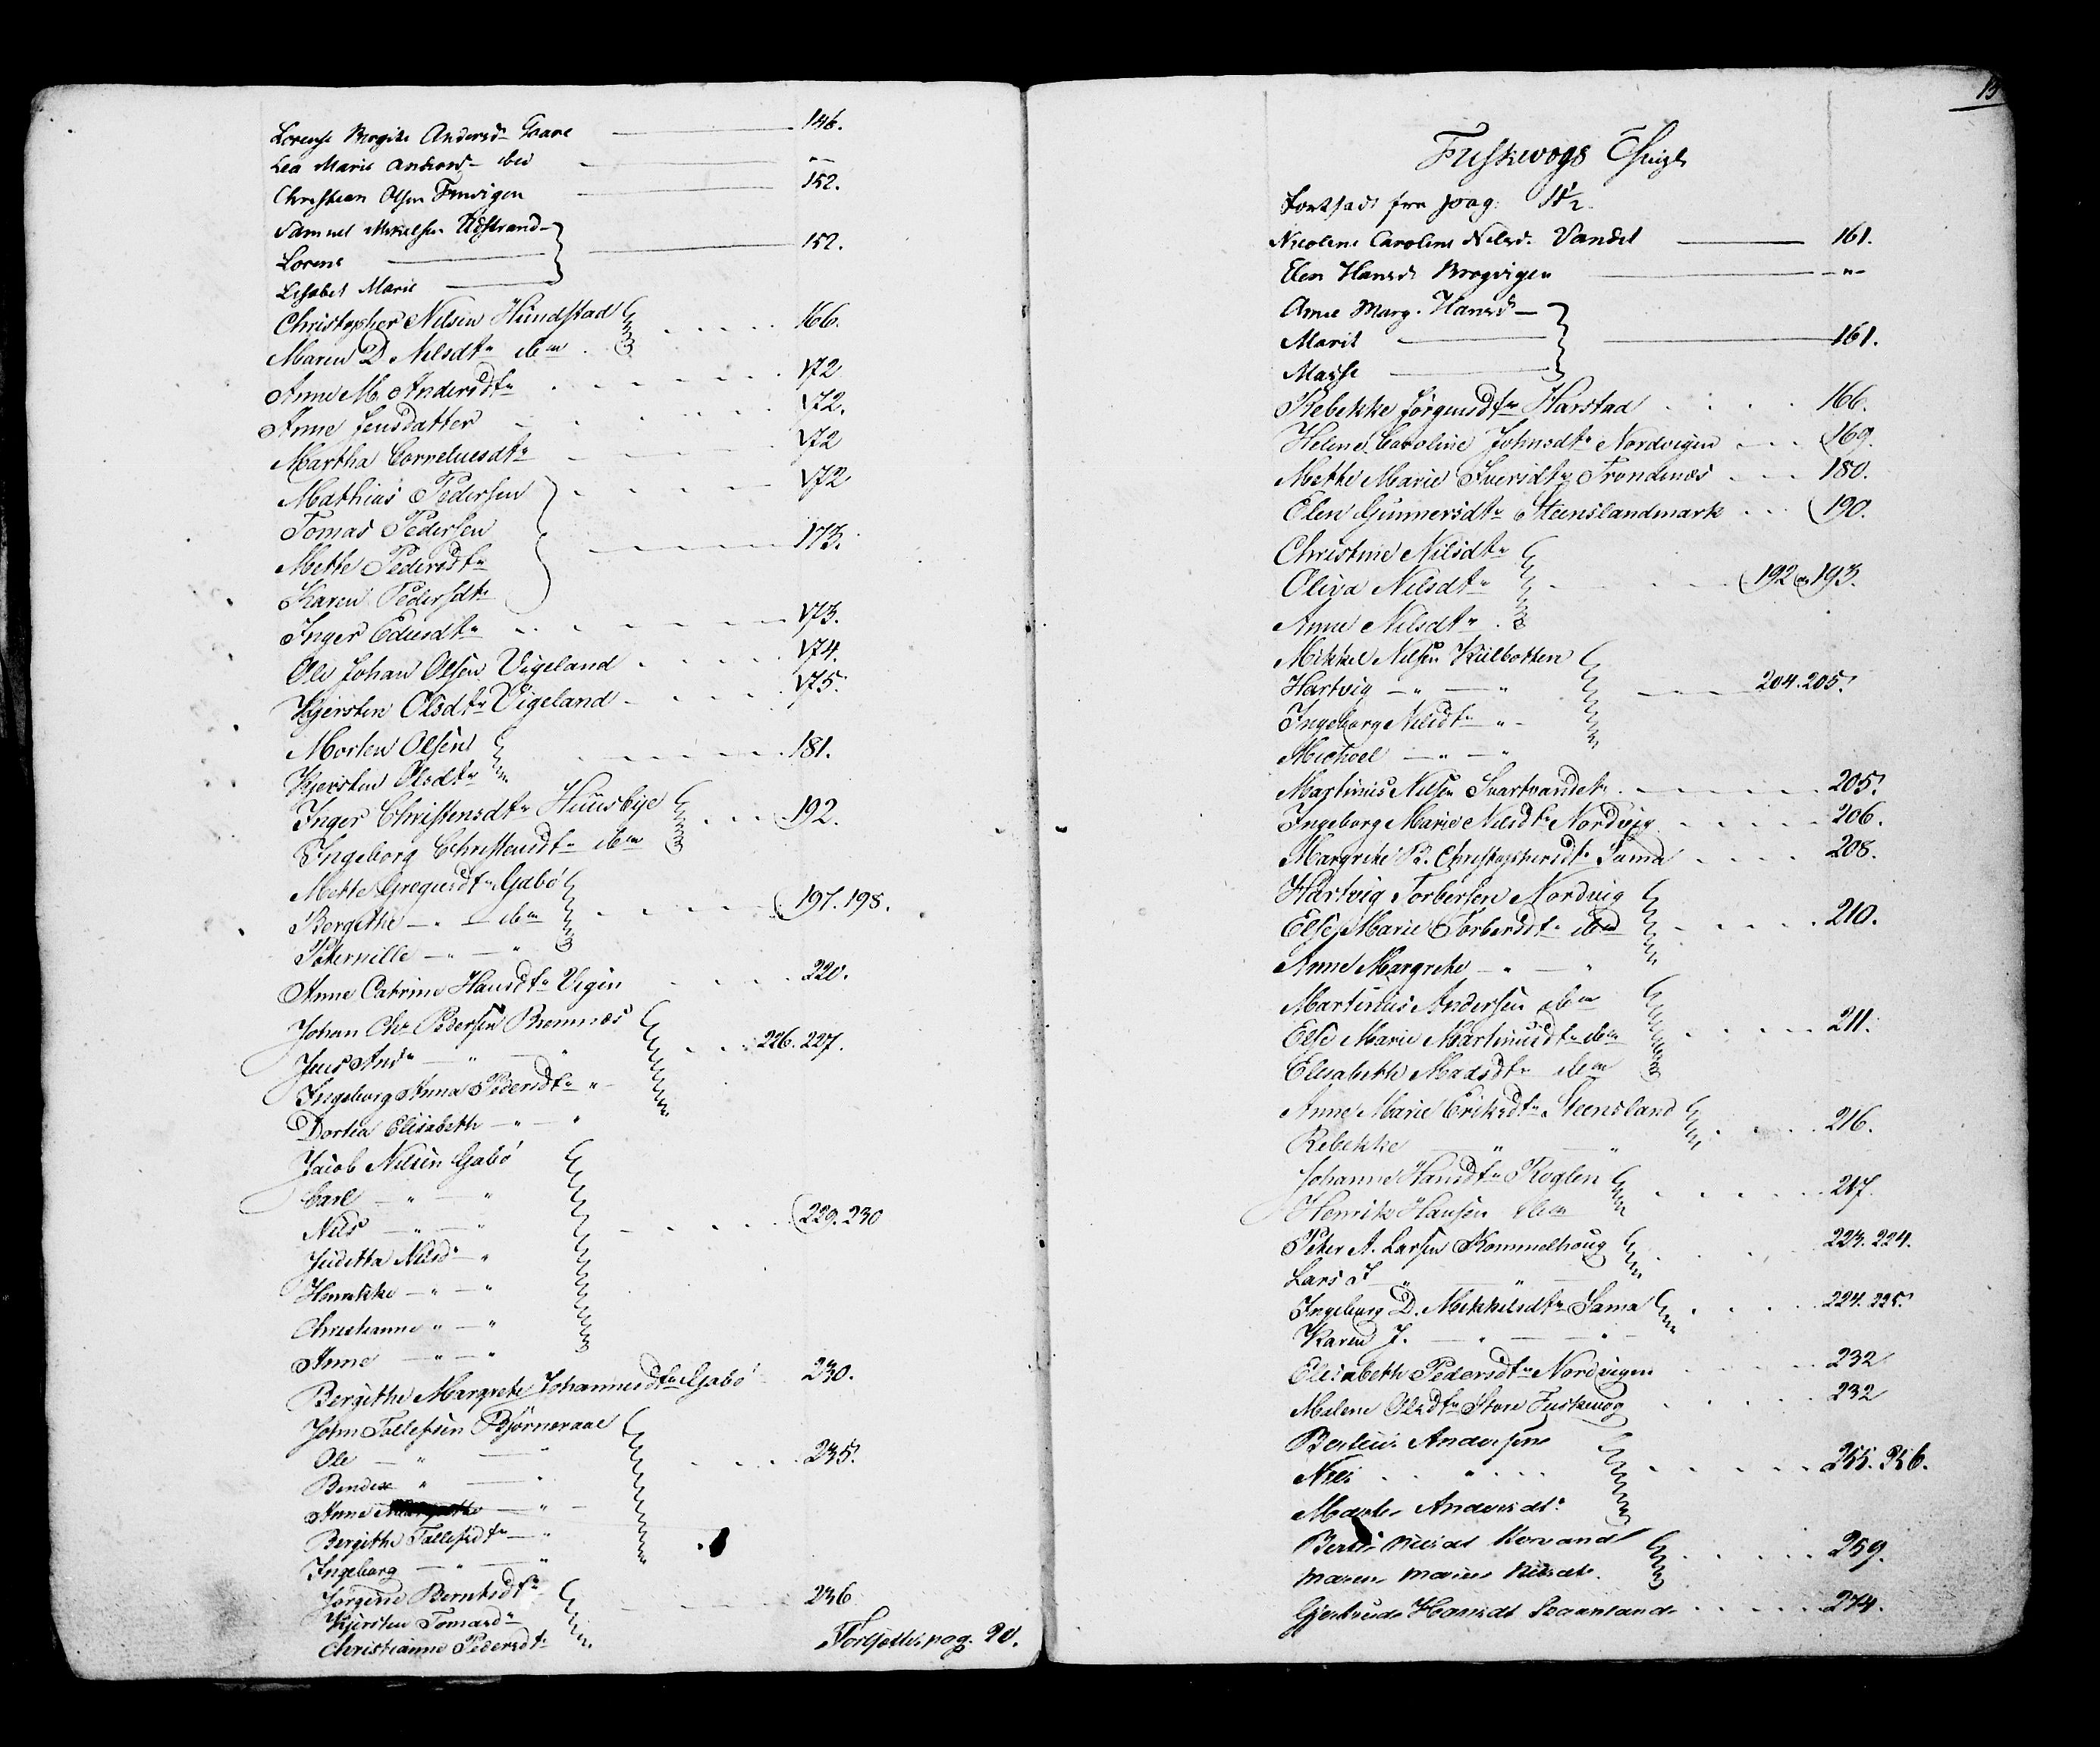 Lorense Birgithe Andersd. Gaare 146.
Lea Marie Andersd ibid "
Christian Olsen 152.
Samuel Mikkelsen
Lorens 152.
Lisabet Marie
Christopher Nilsen Hundstad 166.
Maren D. Nilsdtr ibm
Anne M. Andersdtr 172
Anne Jensdatter 172.
Martha Corneliusdtr 172
Mathias Pedersen 172
Tomas Pedersen
Mette Pedersdtr 173.
Karen Pedersdtr
Inger Edisdtr 173.
Ole Johan Olsen Vigeland 174.
Kjersten Olsdtr Vigeland 175.
Morten Olsen 181.
Kjersten Olsdtr
Inger Christensdtr Huusbye 192.
Ingeborg Christensdtr ibm
Mette Gregersdtr Gabø
Bergithe - " - ibm 197. 198.
Pæternille - " - "
Anne Catrine Hansdtr Vigen 220.
Johan Chr Pedersen Bremnæs
Jens Andr - " - " 226. 227.
Ingeborg Anna Pedersdtr "
Dortea Elisabeth - " - "
Jacob Nilsen Gabø
Carl - " - "
Nils - " - " 229. 230
Juditha Nilsd "
Henrikke - " - "
Christianne " - "
Anne - " - "
Bergithe Margrete Johannesdtr Gabø 230.
John Tollefsen Bjørneraae
Ole - " - " 235.
Bendix " - "
Anne - "
Bergithe Tollefsdtr - "
Ingeborg - " - "
Jørgine Berntsdtr
Kjersten Tomasdr 236
Christianne Pedersdtr
Fortsættes pag. 20.
15
Fuskevogs
Fortsadt fra pag: 11½
Nicoline Caroline Nilsd. Vandet 161.
Elen Hansd. "
Anne Marg. Hansd
Marit 161.
Masse
Rebekke Jørgensdtr Harstad 166.
Helene Caroline Johnsdtr Nordvigen 169.
Methe Marie Iversdtr Trondenæs 180.
Elen Gunnersdtr Steenslandmark 190.
Christine Nilsdtr
Oliva Nilsdtr 192 og 193.
Anne Nilsdtr
Mikkel Nilsen Kulbotten
Hartvig - " - " 204. 205.
Ingeborg Nilsdtr " -
Michael - " - "
Martinus Nilsen Svartvandet 205.
Ingeborg Marie Nilsdtr Nordvig 206.
Margrete B. Christophersdtr Sama 208.
Hartvig Torbersen Nordvig
Else Marie Torbersdtr ibd 210.
Anne Margrethe - " - "
Martinus Andersen ibm
Else Marie Martinusdtr ibm 211.
Elisabeth Madsdtr ibm
Anne Marie Eriksdtr Steensland
Rebekke " " 216.
Johanne Hansdtr Røglen 217.
Henrik Hansen ibm
Peter A. Larsen Kommelhoug 223. 224.
Lars J " "
Ingeborg D. Mikkelsdtr Sama 224. 225.
Karen J. - " - "
Elisabeth Pedersdtr Nordvigen 232
Malene Olsdtr Store Fuskevog 232
Andersen
Nils " 255. 256.
Andersdtr
Nilsdt
Maren Marie Nilsdtr. 259.
Gjertrude Hansdt 274.